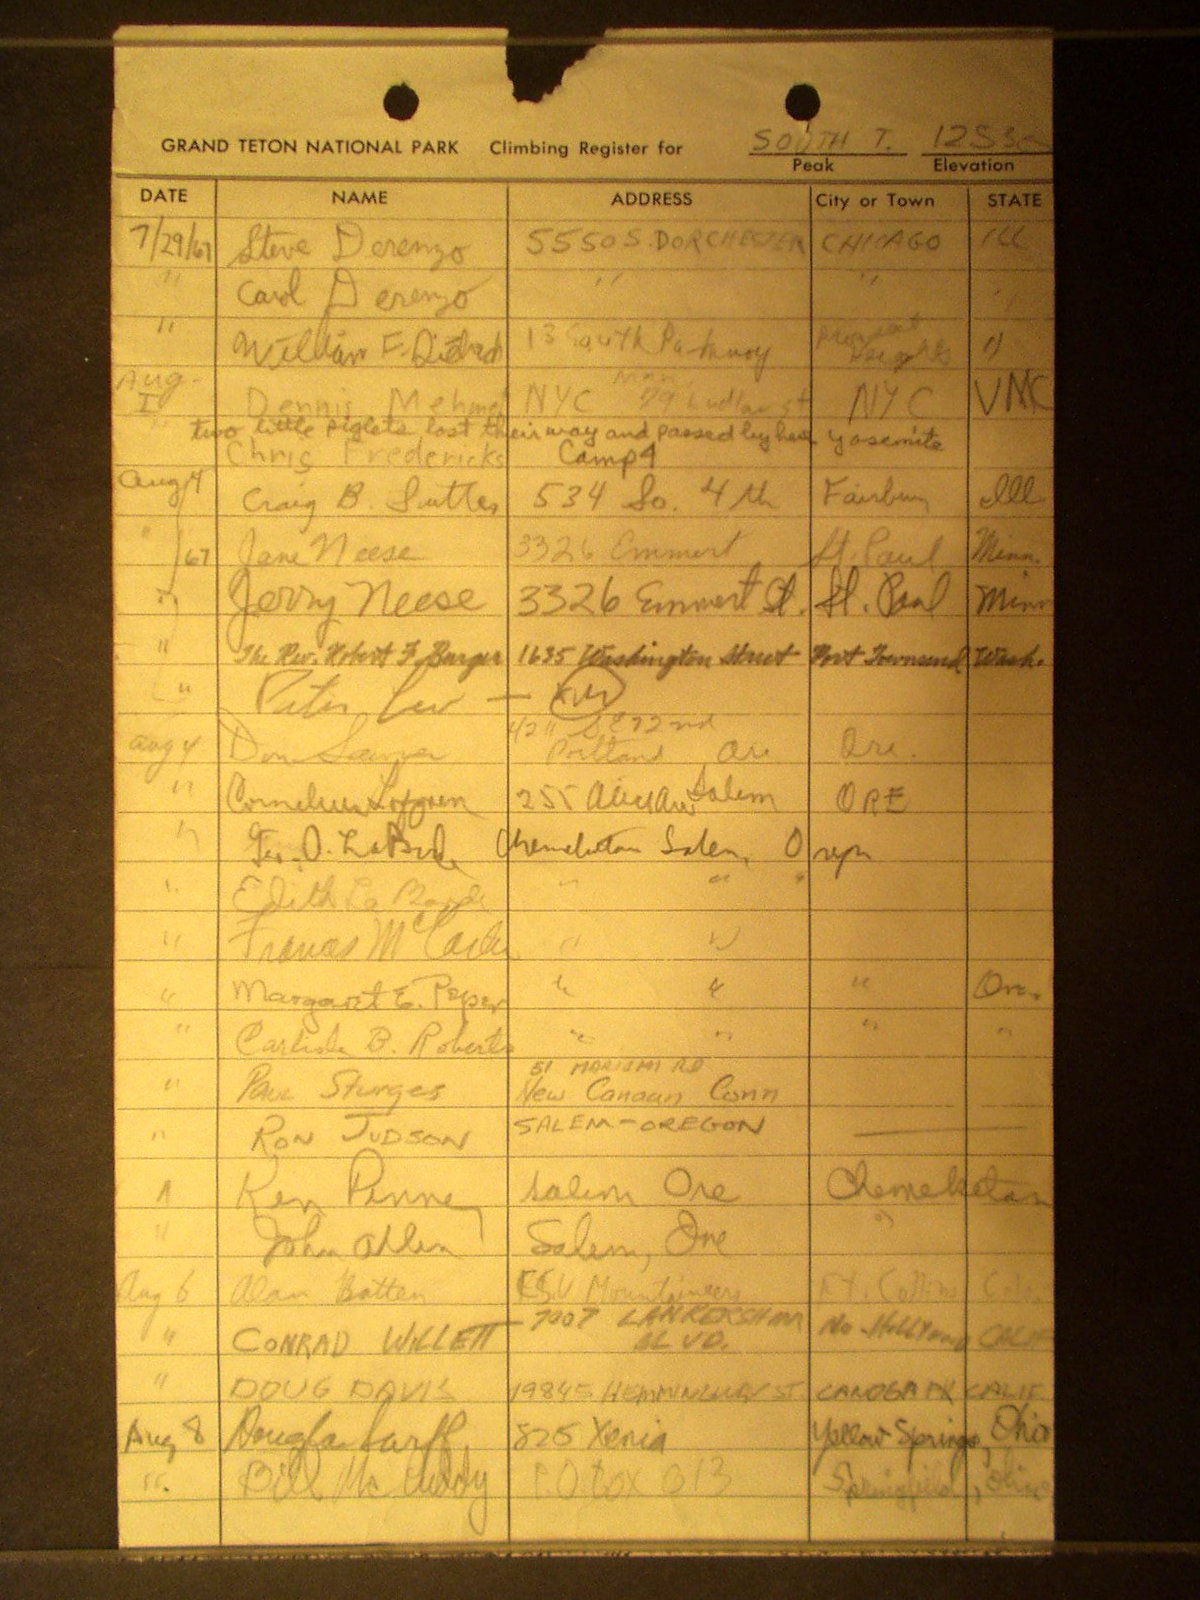 GRAND TETON NATIONAL PARK Climbing Register for SOUTH T.
Peak Elevation
DATE NAME ADDRESS City or Town STATE
7/29/67 Steve Derenzo 5550 S. DORCHESTER CHICAGO ILL
" Carol Derenzo " "
" William F. 13 South Parkway Prospect Heights "
Aug. 1 Dennis Mehmet NYC 79 Ludlow st NYC VNC
two little piglets lost their way and passed by here yosemite
Chris Fredericks Camp 4
Aug 4 Craig B. Suttles 534 So. 4th Fairbury Ill
" /67 Jane Neese 3326 Emmert St. Paul Minn.
" Jerry Neese 3326 Emmert St. St. Paul Minn
" The Rev. Robert F. Burger 1635 Washington Street Port Townsend Wash.
" Peter Lev —
Aug 4 Don 4211 SE 72nd Portland Ore Ore.
" Cornelius Lofgren 255 Salem ORE
" Geo. O. Chemeketan Salem, Oregn
" Edith " " "
" Frances " "
" Margaret E. Peper " " " Ore.
" Carlisle B. Roberts " " " "
" Paul Sturges 51 RD New Canaan Conn
" RON JUDSON SALEM-OREGON
" Ken Penney Salem Ore Chemeketan
" John Allen Salem, Ore "
Aug 6 Alan Batten CSU Mountaineers Ft. Collins Colo.
" CONRAD WILLETT 7907 LANKERSHIM BLVD. No. Hollywood CALIF
" DOUG DAVIS 19845 HEMMINGWAY ST. CANOGA PK CALIF.
Aug 8 Douglas 825 Xenia Yellow Springs, Ohio
" Bill McCuddy P.O. Box 613 Springfield, Ohio